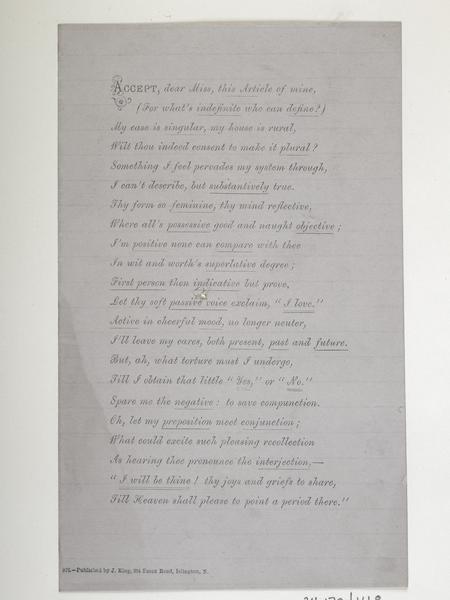 ACCEPT, dear Miss, this Article of mine,
(For what's indefinite who can define?)
My case is singular, my house is rural,
Wilt thou indeed consent to make it plural?
Something I feel pervades my system through,
I can't describe, but substantively true.
Thy form so feminine, thy mind reflective,
Where all's possessive good and naught objective;
I'm positive none can compare with thee
In wit and worth's superlative degree;
First person then indicative but prove,
Let thy soft passive voice exclaim, "I love."
Active in cheerful mood, no longer neuter,
I'll leave my cares, both present, past and future.
But, ah, what torture must I undergo,
Till I obtain that little "Yes," or "No."
Spare me the negative: to save compunction.
Oh, let my preposition meet conjunction;
What could excite such pleasing recollection
As hearing thee pronounce the interjection,—
"I will be thine! thy joys and griefs to share,
Till Heaven shall please to point a period there."
—Published by J. King, Essex Road, Islington, N.